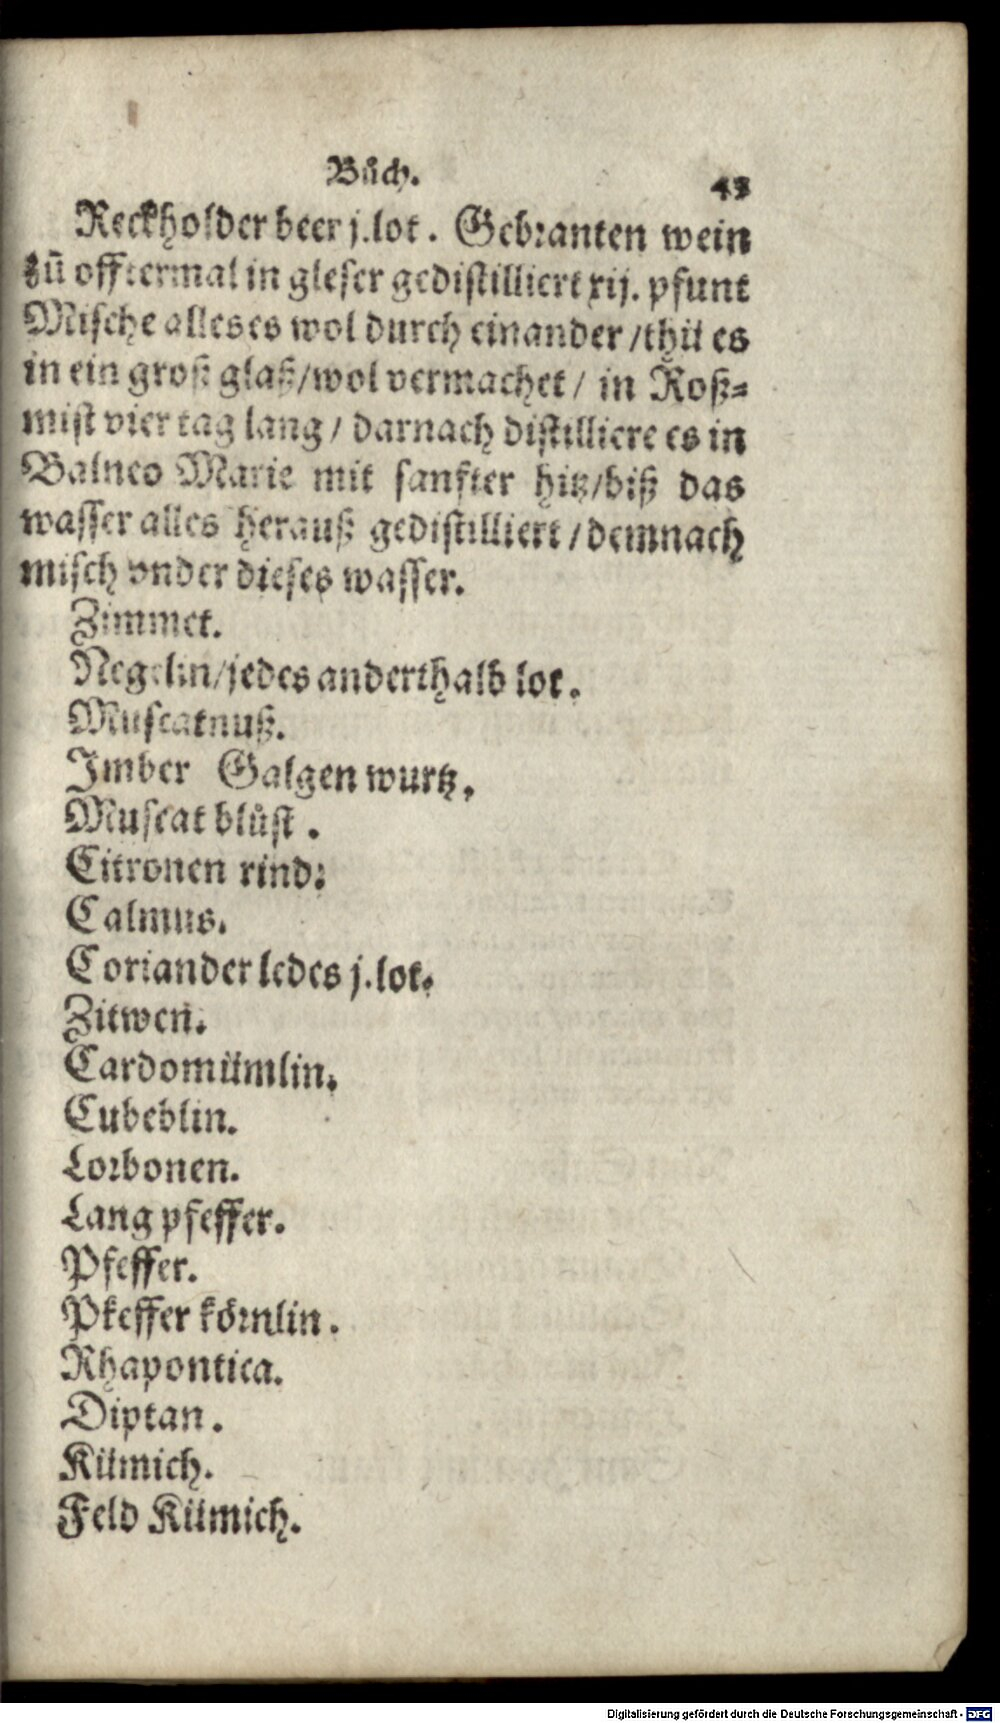 Bůch. 43
Reckholder beer j.lot. Gebranten wein
zů offtermal in gleser gedistilliert xij. pfunt
Mische alles es wol durch einander / thů es
in ein groß glaß / wol vermachet / in Roß=
mist vier tag lang / darnach distilliere es in
Balneo Marie mit sanfter hitz / biß das
wasser alles herauß gedistilliert / demnach
misch vnder dieses wasser.
Zimmet.
Negelin / jedes anderthalb lot.
Muscatnuß.
Imber Galgen wurtz.
Muscat blůst.
Citronen rind:
Calmus.
Coriander ledes j.lot.
Zitwen.
Cardomümlin.
Cubeblin.
Lorbonen.
Lang pfeffer.
Pfeffer.
Pkeffer körnlin.
Rhapontica.
Diptan.
Kümich.
Feld Kümich.
Digitalisierung gefördert durch die Deutsche Forschungsgemeinschaft - DFG